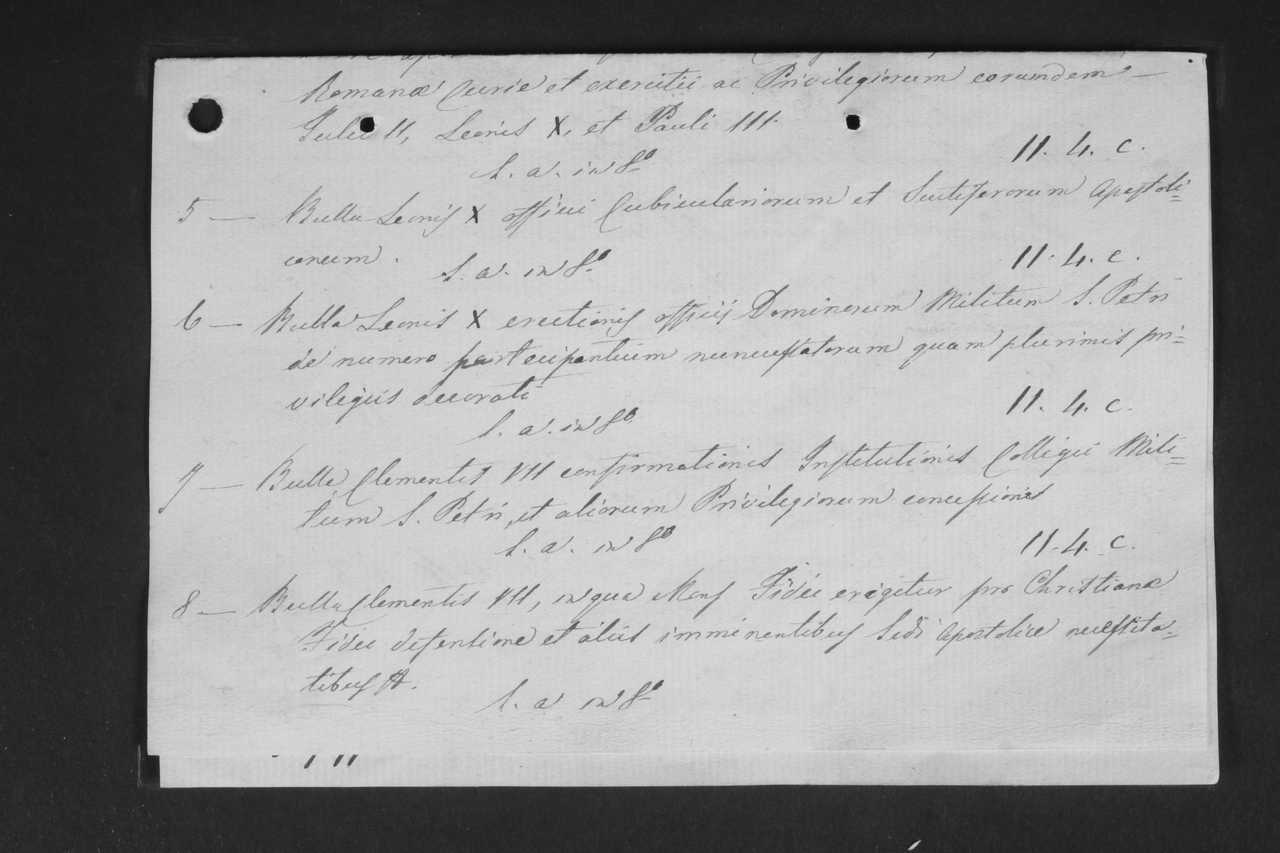 Romanæ Curiæ et exercitii ac Privilegiorum eorumdem —
Julii II, Leonis X, et Pauli III.
s. a. in 8º
11. 4. c.
5 — Bulla Leonis X officii Cubiculariorum et Scutiferorum Apostoli=
corum.
s. a. in 8º
11. 4. c.
6 — Bulla Leonis X erectionis officij Dominorum Militum S. Petri
de numero participantium nuncupatorum quam plurimis pri=
vilegiis decorati
s. a. in 8º
11. 4. c.
7 — Bulla Clementis VII confirmationis Institutionis Collegii Mili=
tum S. Petri, et aliorum Privilegiorum concessiones
s. a. in 8º
11. 4. c.
8 — Bulla Clementis VII, in qua Mons Fidei erigitur pro Christianæ
Fidei defensione et aliis imminentibus Sedi Apostolicæ necessita=
tibus &.
s. a in 8º